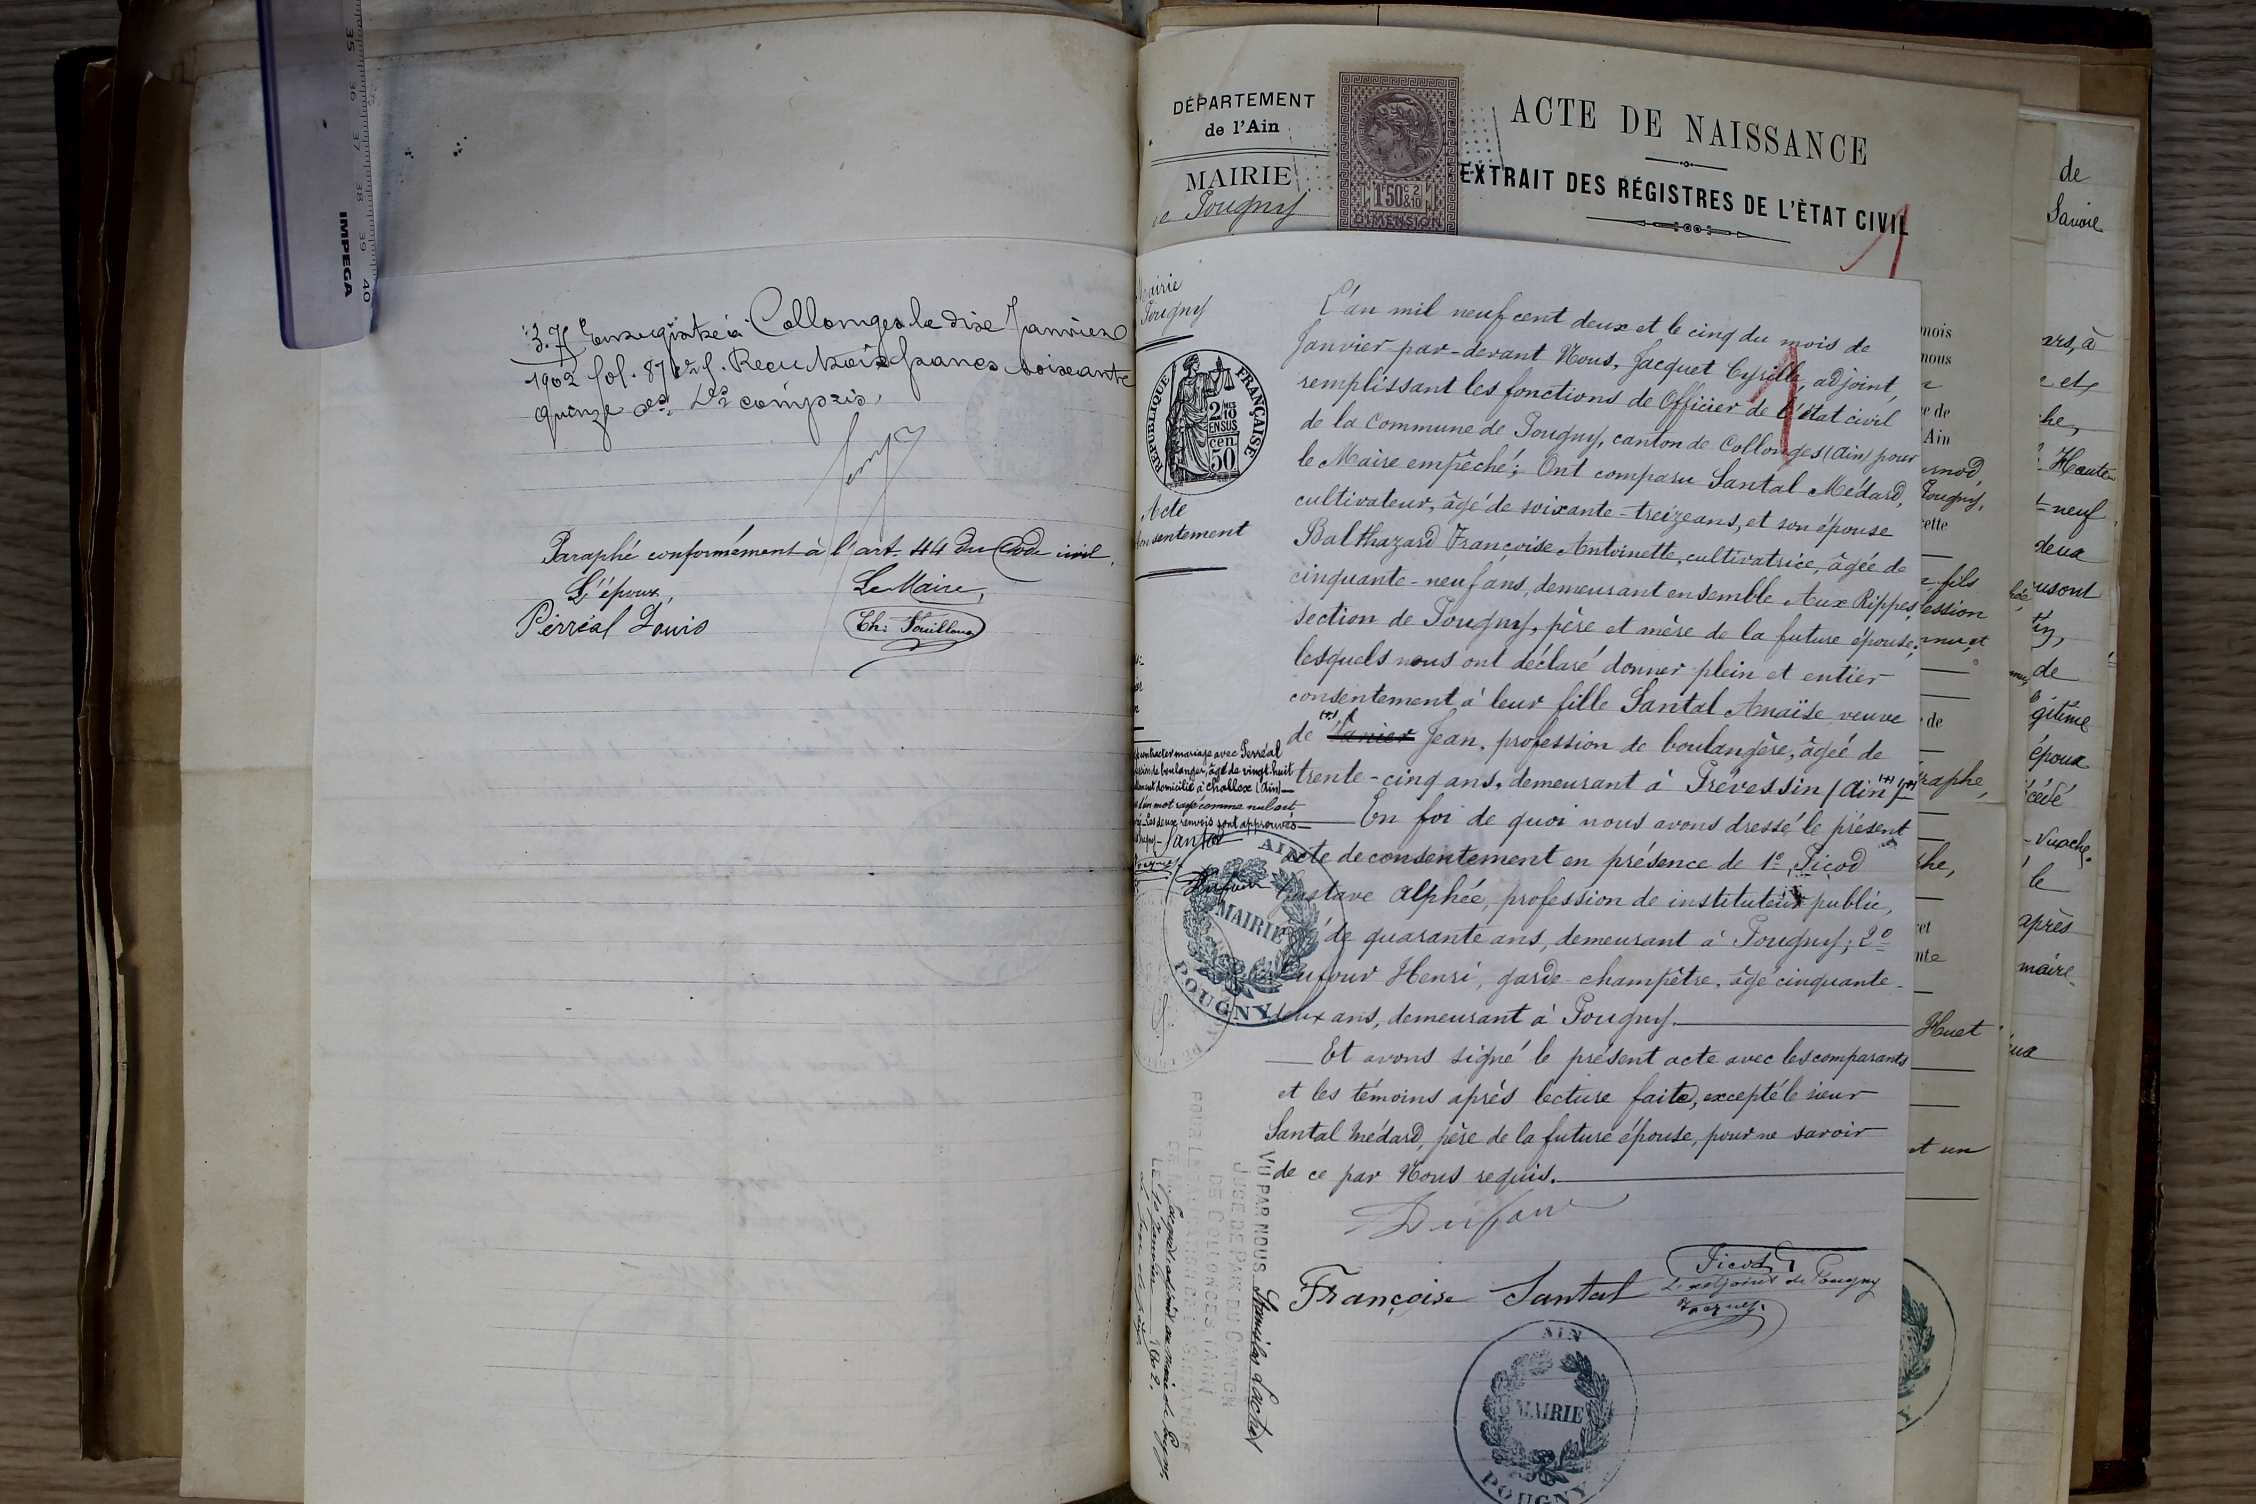 35 36 37 38 39 40
IMPEGA
Enregistré à Collonges le dix Janvier
1902 fol. 87 Reçu trois francs soixante
quinze cs. Ds compris.
Paraphé conformément à l'art. 44 du Code civil.
L'époux, Le Maire,
Perréal Louis
DÉPARTEMENT
de l'Ain
MAIRIE
de Pougny
1F50c 2/10
DIMENSION
ACTE DE NAISSANCE
EXTRAIT DES RÉGISTRES DE L'ÈTAT CIVIL
Mairie
Pougny
RÉPUBLIQUE FRANÇAISE
2 MES 10
EN SUS
cen
50
Acte
consentement
L'an mil neuf cent deux et le cinq du mois de
Janvier par-devant Nous, Jacquet Cyrille, adjoint,
remplissant les fonctions de Officier de l'état civil
de la Commune de Pougny, canton de Collonges (Ain) pour
le Maire empêché; Ont comparu Santal Médard,
cultivateur, âgé de soixante-treize ans, et son épouse
Balthazard Françoise Antoinette, cultivatrice, âgée de
cinquante-neuf ans, demeurant ensemble Aux Rippes,
section de Pougny, père et mère de la future épouse;
lesquels nous ont déclaré donner plein et entier
consentement à leur fille Santal Anaïse veuve
de Jean, profession de boulangère, âgée de
trente-cinq ans, demeurant à Prévessin (Ain)
En foi de quoi nous avons dressé le présent
acte de consentement en présence de 1º Picod
Gustave Alphée, profession de instituteur public,
de quarante ans, demeurant à Pougny; 2º
Dufour Henri, garde-champêtre, âgé cinquante-
deux ans, demeurant à Pougny.
Et avons signé le présent acte avec les comparants
et les témoins après lecture faite, excepté le sieur
Santal Médard, père de la future épouse, pour ne savoir
de ce par Nous requis.
Dufour
Françoise Santal Picod
L'adjoint de Pougny
Jacquet
contracter mariage avec Perréal
profession de boulanger, âgé de vingt-huit
domicilié à Challex (Ain)
d'un mot rayé comme nul est
Les deux renvois sont approuvés
Santal
Dufour
AIN
MAIRIE
POUGNY
VU PAR NOUS
JUGE DE PAIX DU CANTON
DE COLLONGES (AIN)
POUR LEGALISATION DE LA SIGNATURE
Jacquet adjoint au maire de Pougny
LE Janvier 1902.
AIN
MAIRIE
POUGNY
mois
nous
de
Ain
Pougny,
cette
fils
de
Huet
et un
de
Savoie
à
et
Haute
neuf
deux
de
époux
le
après
maire